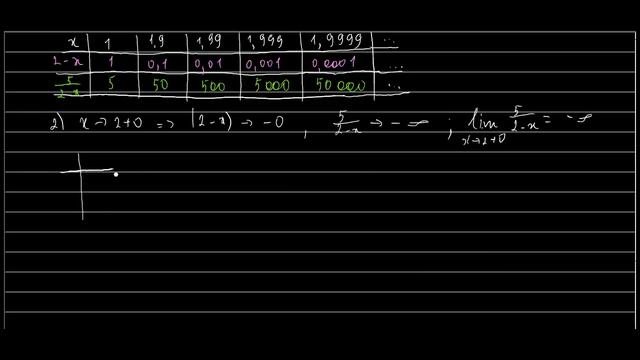 x 1 1,9 1,99 1,999 1,9999 ...
2-x 1 0,1 0,01 0,001 0,0001 ...
5/2-x 5 50 500 5000 50 000 ...
2) x → 2+0 => (2-x) → -0 , 5/2-x → -∞ ; lim x→2+0 5/2-x = -∞